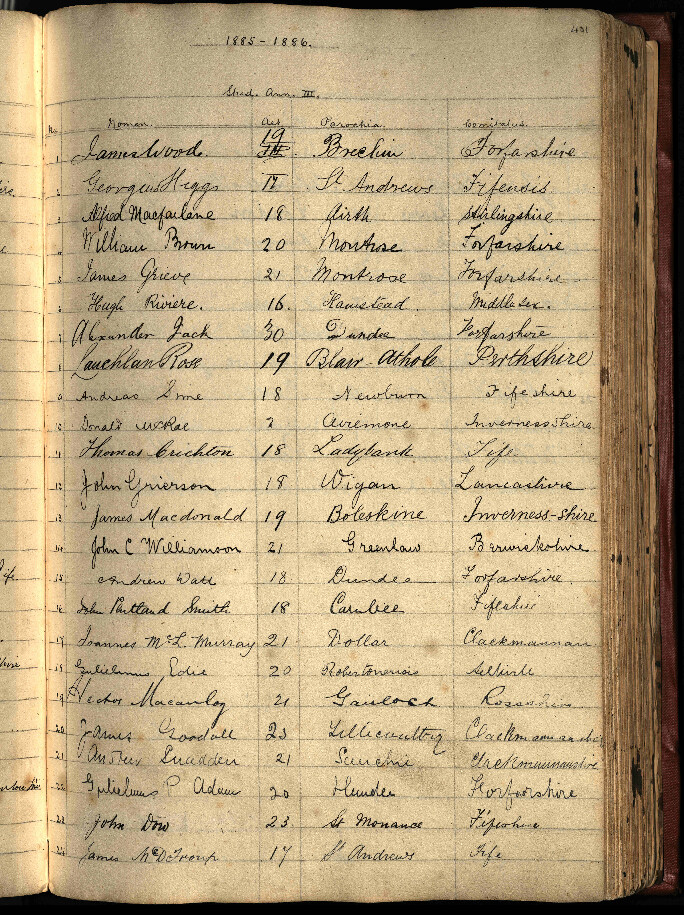 431
1885-1886.
Stud. Ann. III.
No. Nomen. Aet. Parochia. Comitatus.
19
1 James Wood. Brechin Forfarshire
2 Georgius Higgs 17 St Andrews Fifensis
3 Alfred Macfarlane 18 Stirlingshire
4 William Brown 20 Montrose Forfarshire
5 James Grieve 21 Montrose Forfarshire
6 Hugh Riviere. 16. Hamstead. Middlesex.
7 Alexander Jack 30 Dundee Forfarshire
8 Lauchlan Rose 19 Blair-Athole Perthshire
9 Andreas 18 Newburn Fifeshire
10 Donald McRae 2 Aviemore Inverness Shire
11 Thomas Crichton 18 Ladybank Fife
12 John Grierson 18 Wigan Lancashire
13 James Macdonald 19 Boleskine Inverness-shire
14 John C Williamson 21 Greenlaw Berwickshire
15 Andrew Watt 18 Dundee Forfarshire
16 John Smith 18 Carnbee Fifeshire
17 Joannes McL. Murray 21 Dollar Clackmannan
18 Gulielmus Edie 20
19 Hector Macaulay 21 Gairloch Ross-shire
20 James Goodall 23 Tillicoultry Clackmannanshire
21 Andrew Snadden 21 Sauchie Clackmannanshire
22 Gulielmus P. Adam 20 Dundee Forfarshire
23 John Dow 23 St Monance Fifeshire
24 James 17 St Andrews Fife